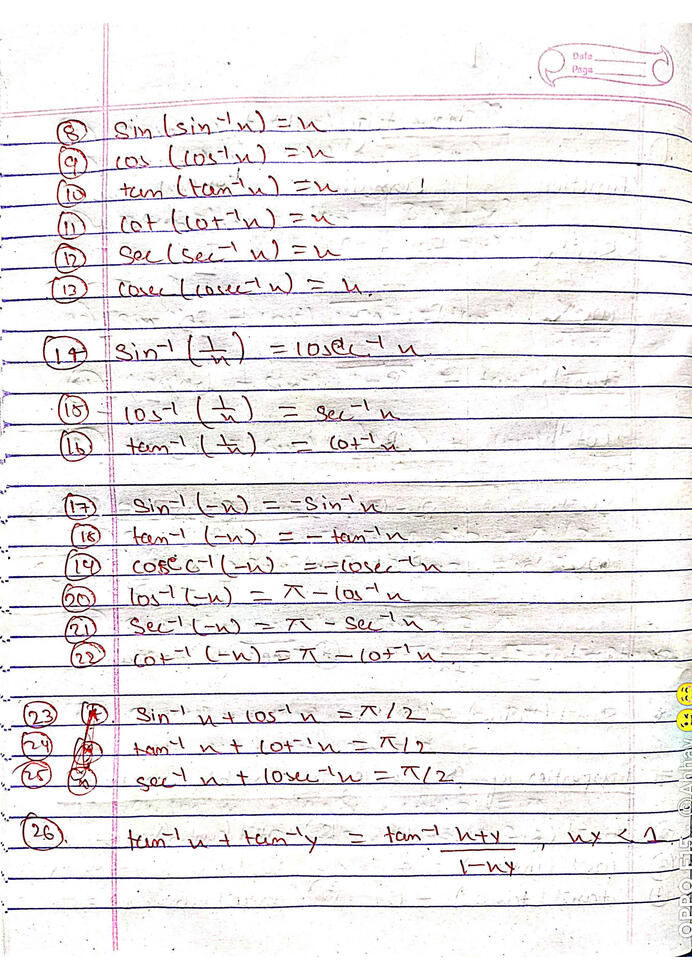 Date
Page
(8) sin (sin⁻¹x) = x
(9) cos (cos⁻¹x) = x
(10) tan (tan⁻¹x) = x
(11) cot (cot⁻¹x) = x
(12) sec (sec⁻¹ x) = x
(13) cosec (cosec⁻¹x) = x.
(14) sin⁻¹ (1/x) = cosec⁻¹ x
(15) cos⁻¹ (1/x) = sec⁻¹x
(16) tan⁻¹ (1/x) = cot⁻¹x.
(17) sin⁻¹ (-x) = -sin⁻¹x
(18) tan⁻¹ (-x) = - tan⁻¹x
(19) cosec⁻¹ (-x) = -cosec⁻¹x
(20) cos⁻¹ (-x) = π - cos⁻¹x
(21) sec⁻¹ (-x) = π - sec⁻¹x
(22) cot⁻¹ (-x) = π - cot⁻¹x
(23) sin⁻¹ x + cos⁻¹x = π/2
(24) tan⁻¹ x + cot⁻¹x = π/2
(25) sec⁻¹ x + cosec⁻¹x = π/2
(26). tan⁻¹x + tan⁻¹y = tan⁻¹ x+y/1-xy, xy < 1